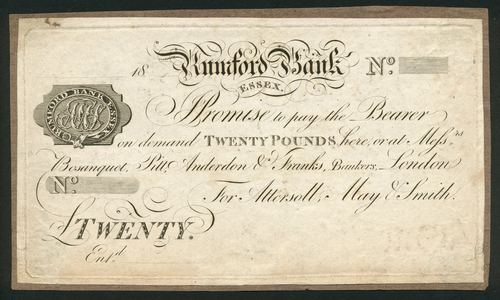 18 Rumford Bank No.
ESSEX.
RUMFORD BANK ESSEX
I Promise to pay the Bearer
on demand TWENTY POUNDS here, or at Messrs
Bosanquet, Pitt, Anderdon & Franks, Bankers, London
No.
For Attersoll, May & Smith.
£TWENTY.
Entd